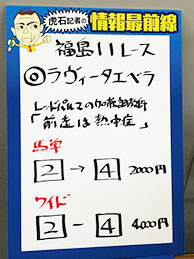 虎石記者の
情報最前線
福島11レース
◎ラヴィータエベラ
レッドパルスの
「前走は熱中症」
馬単
2→4 2000円
ワイド
2-4 4000円